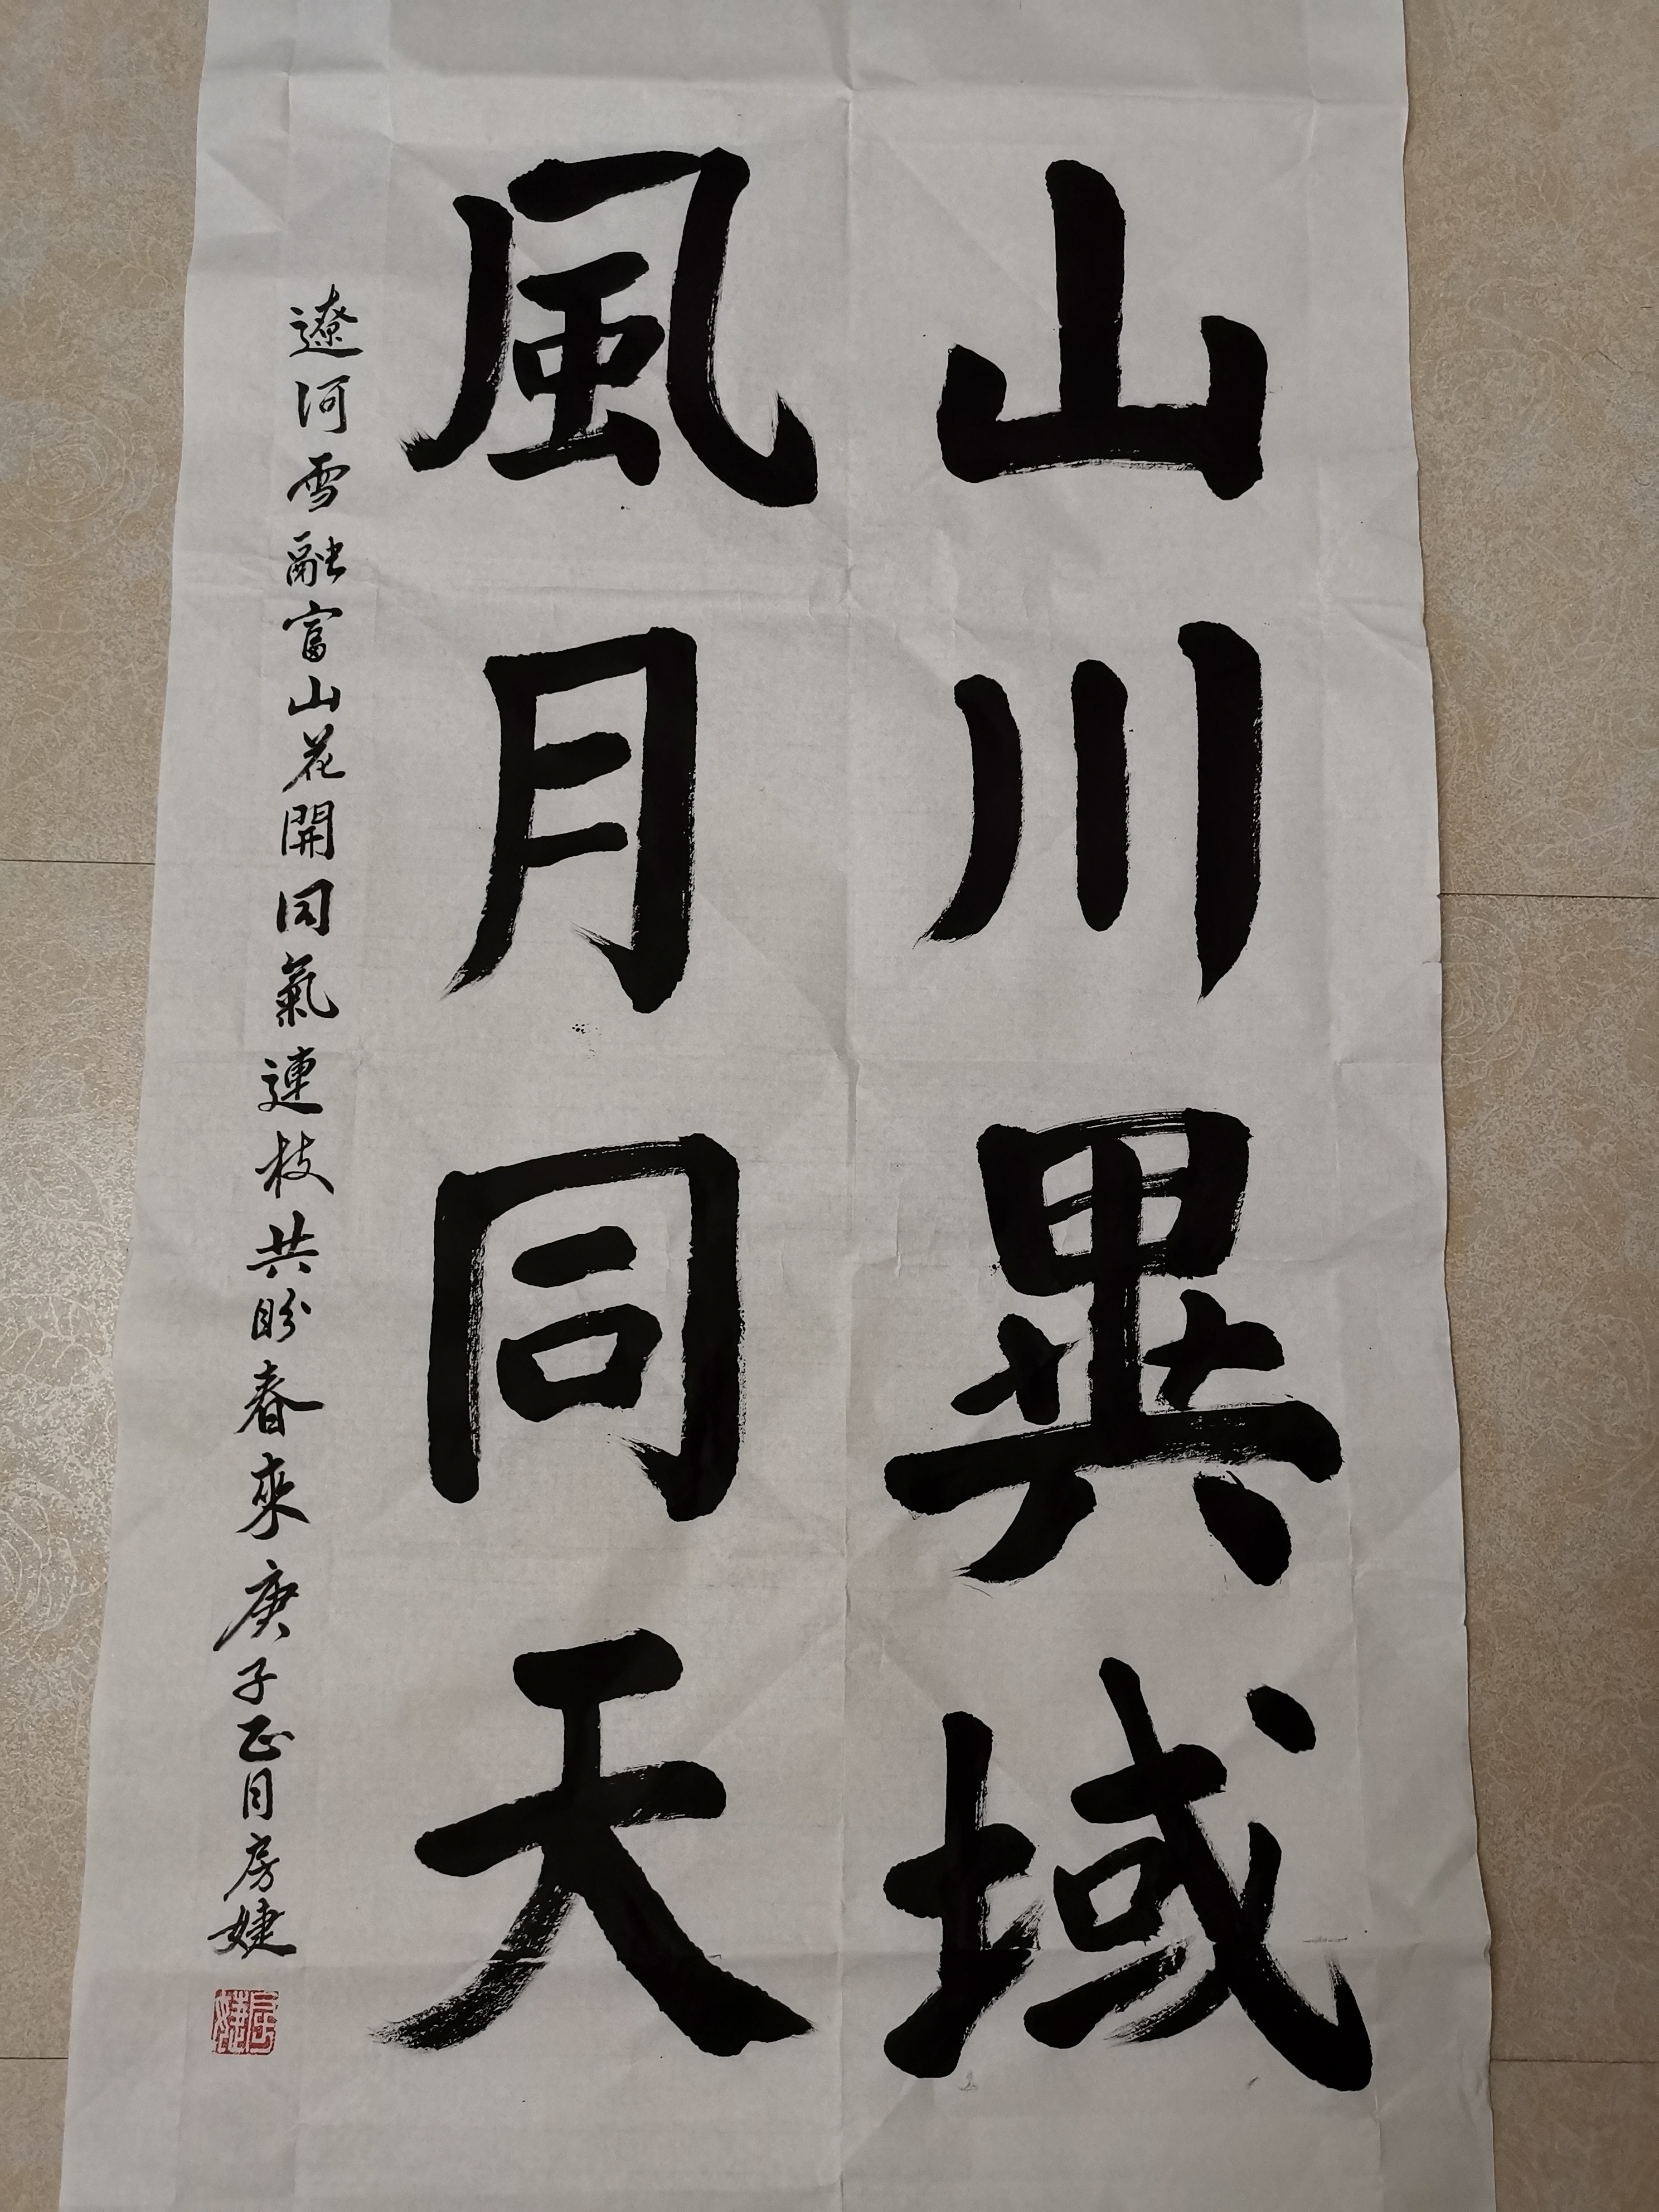 山川異域
風月同天
遼河雪融富山花開同氣連枝共盼春來庚子正月房婕
房婕